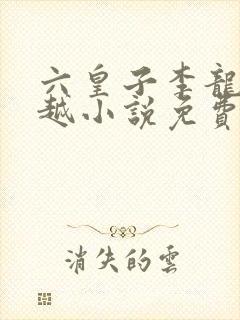 六皇子李龍
越小說免費
消失的雲